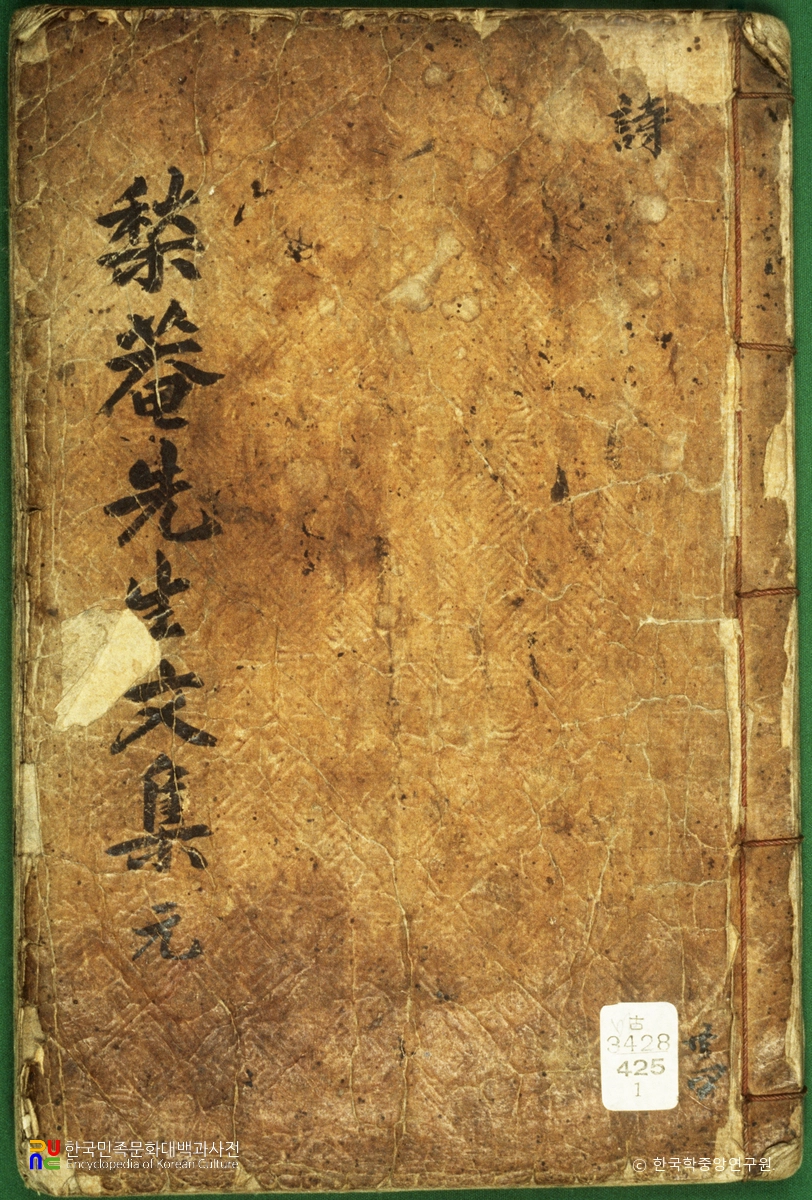 詩
棃菴先生文集 元
共四
古
3428
425
1
한국민족문화대백과사전
Encyclopedia of Korean Culture
© 한국학중앙연구원